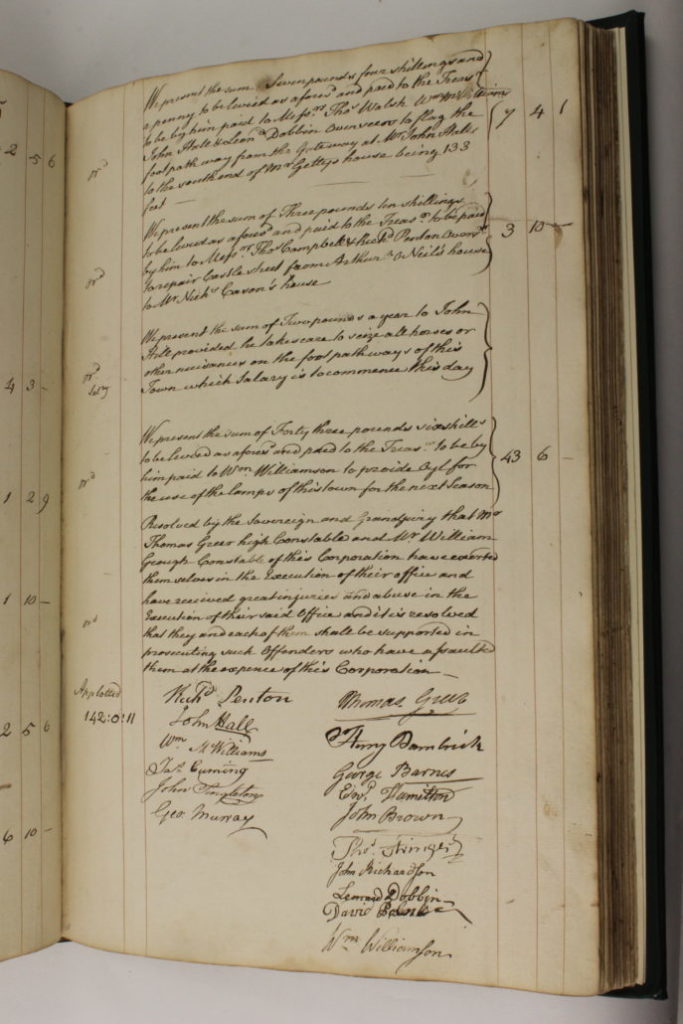 We present the sum Seven pounds four shillings and
a penny to be levied as afores^d and paid to the Treas^r
to be by him paid to Mess^rs Tho^s Walsh W^m M^cWilliams
John Hall & Leon^d Dobbin Overseers to flag the 7 4 1
foot path way from the Gateway at Mr John Hall's
to the south end of Mr Gettys house being 133
feet
We present the sum of Three pounds ten shillings
to be levied as afores^d and paid to the Treas^r to be paid
by him to Mess^rs Tho^s Campbell & Rich^d Penton Overs^rs 3 10 —
to repair Castle street from Arthur O Neil's house
to Mr Nich^s Cason's house
We present the sum of Two pounds a year to John
Hill provided he takes care to seize all horses or
other nuisances on the foot path ways of this
Town which Salary is to commence this day
We present the sum of Forty three pounds six shill^s
to be levied as afores^d and paid to the Treas^r to be by
him paid to W^m Williamson to provide Oyl for 43 6 —
the use of the lamps of this town for the next Season
Resolved by the Sovereign and Grandjury that Mr
Thomas Greer high Constable and Mr William
Gough Constable of this Corporation have exerted
them selves in the Execution of their office and
have received great injuries and abuse in the
Execution of their said Office and it is resolved
that they and each of them shall be supported in
prosecuting such Offenders who have assaulted
them at the expence of this Corporation —
Applotted
142:0:11
Rich^d Penton
John Hall
W^m M^cWilliams
Ja^s Cuming
John Singleton
Geo. Murray
Thomas Greer
George Barnes
Edw^d Hamilton
John Brown
Tho^s Stringer
John Richardson
Leonard Dobbin
David
W^m Williamson
2 5 6
4 3 —
1 2 9
1 10 —
2 5 6
6 10 —